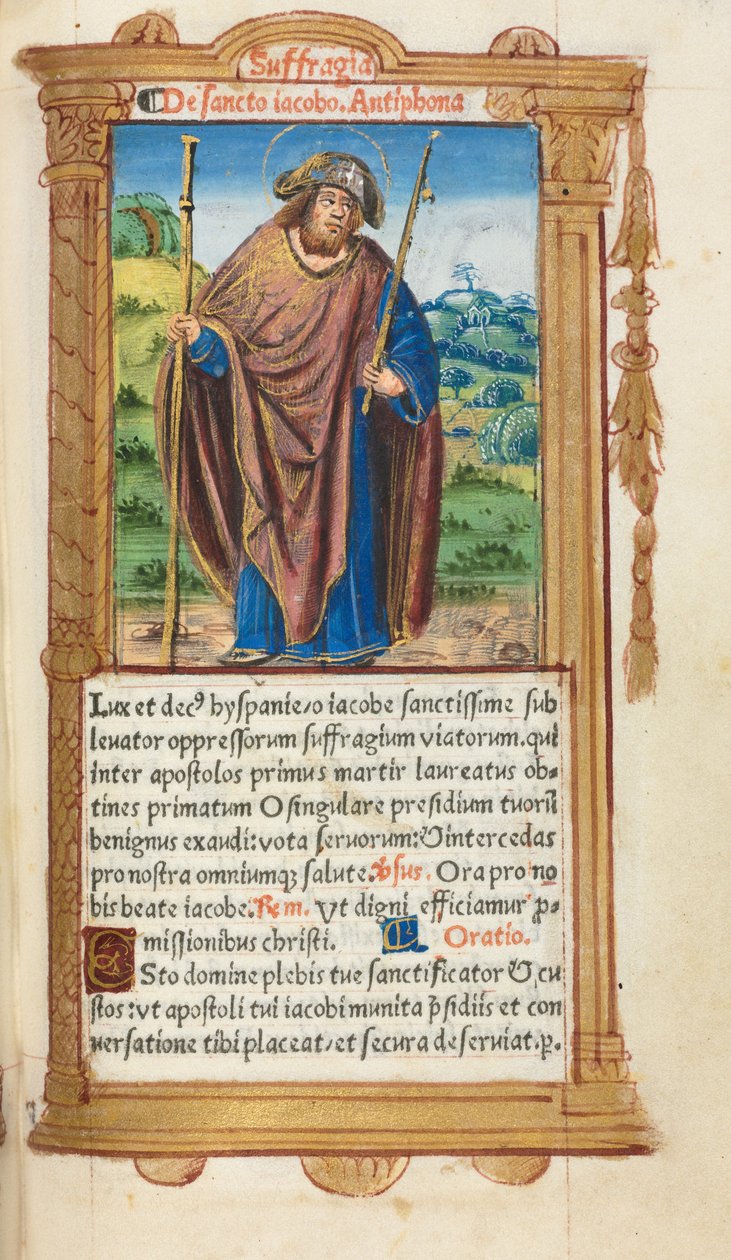 Suffragia
De sancto iacobo. Antiphona
Lux et decꝰ hyspanie, o iacobe sanctissime sub
leuator oppressorum suffragium viatorum. qui
inter apostolos primus martir laureatus ob-
tines primatum O singulare presidium tuorū
benignus exaudi: vota seruorum: & intercedas
pro nostra omniumqꝫ salute. v̾sus. Ora pro no
bis beate iacobe. Rem. Vt digni efficiamur p̱-
missionibus christi. Oratio.
ESto domine plebis tue sanctificator & cu
stos: vt apostoli tui iacobi munita p̄sidiis et con
uersatione tibi placeat, et secura deseruiat. p̱.